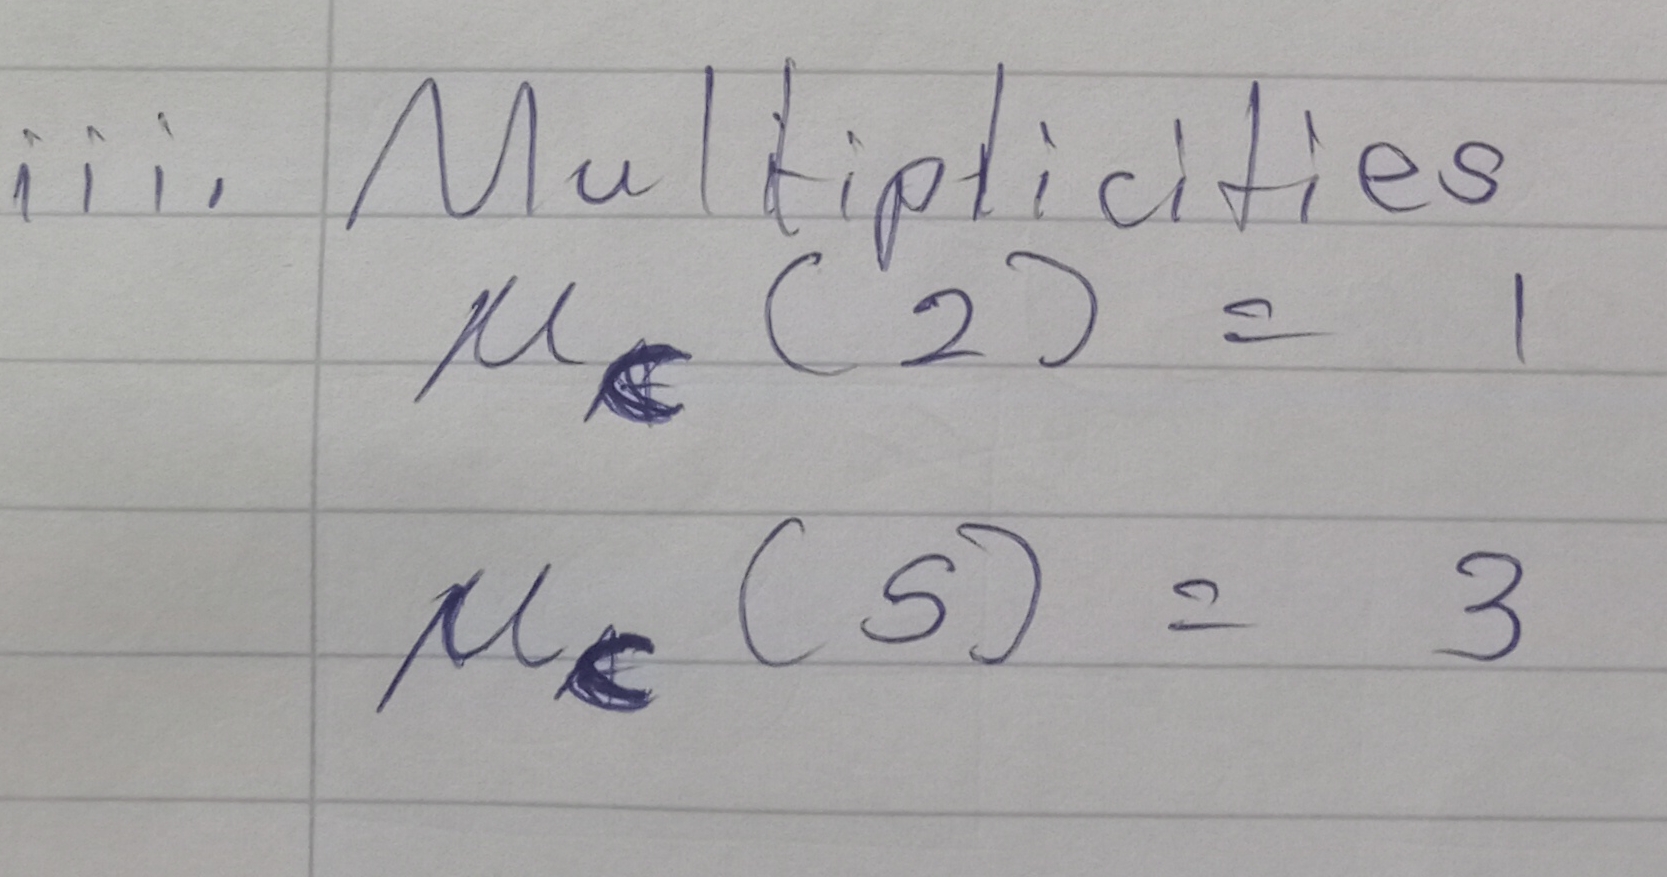 iii. Multiplicities
μc (2) = 1
μc (5) = 3